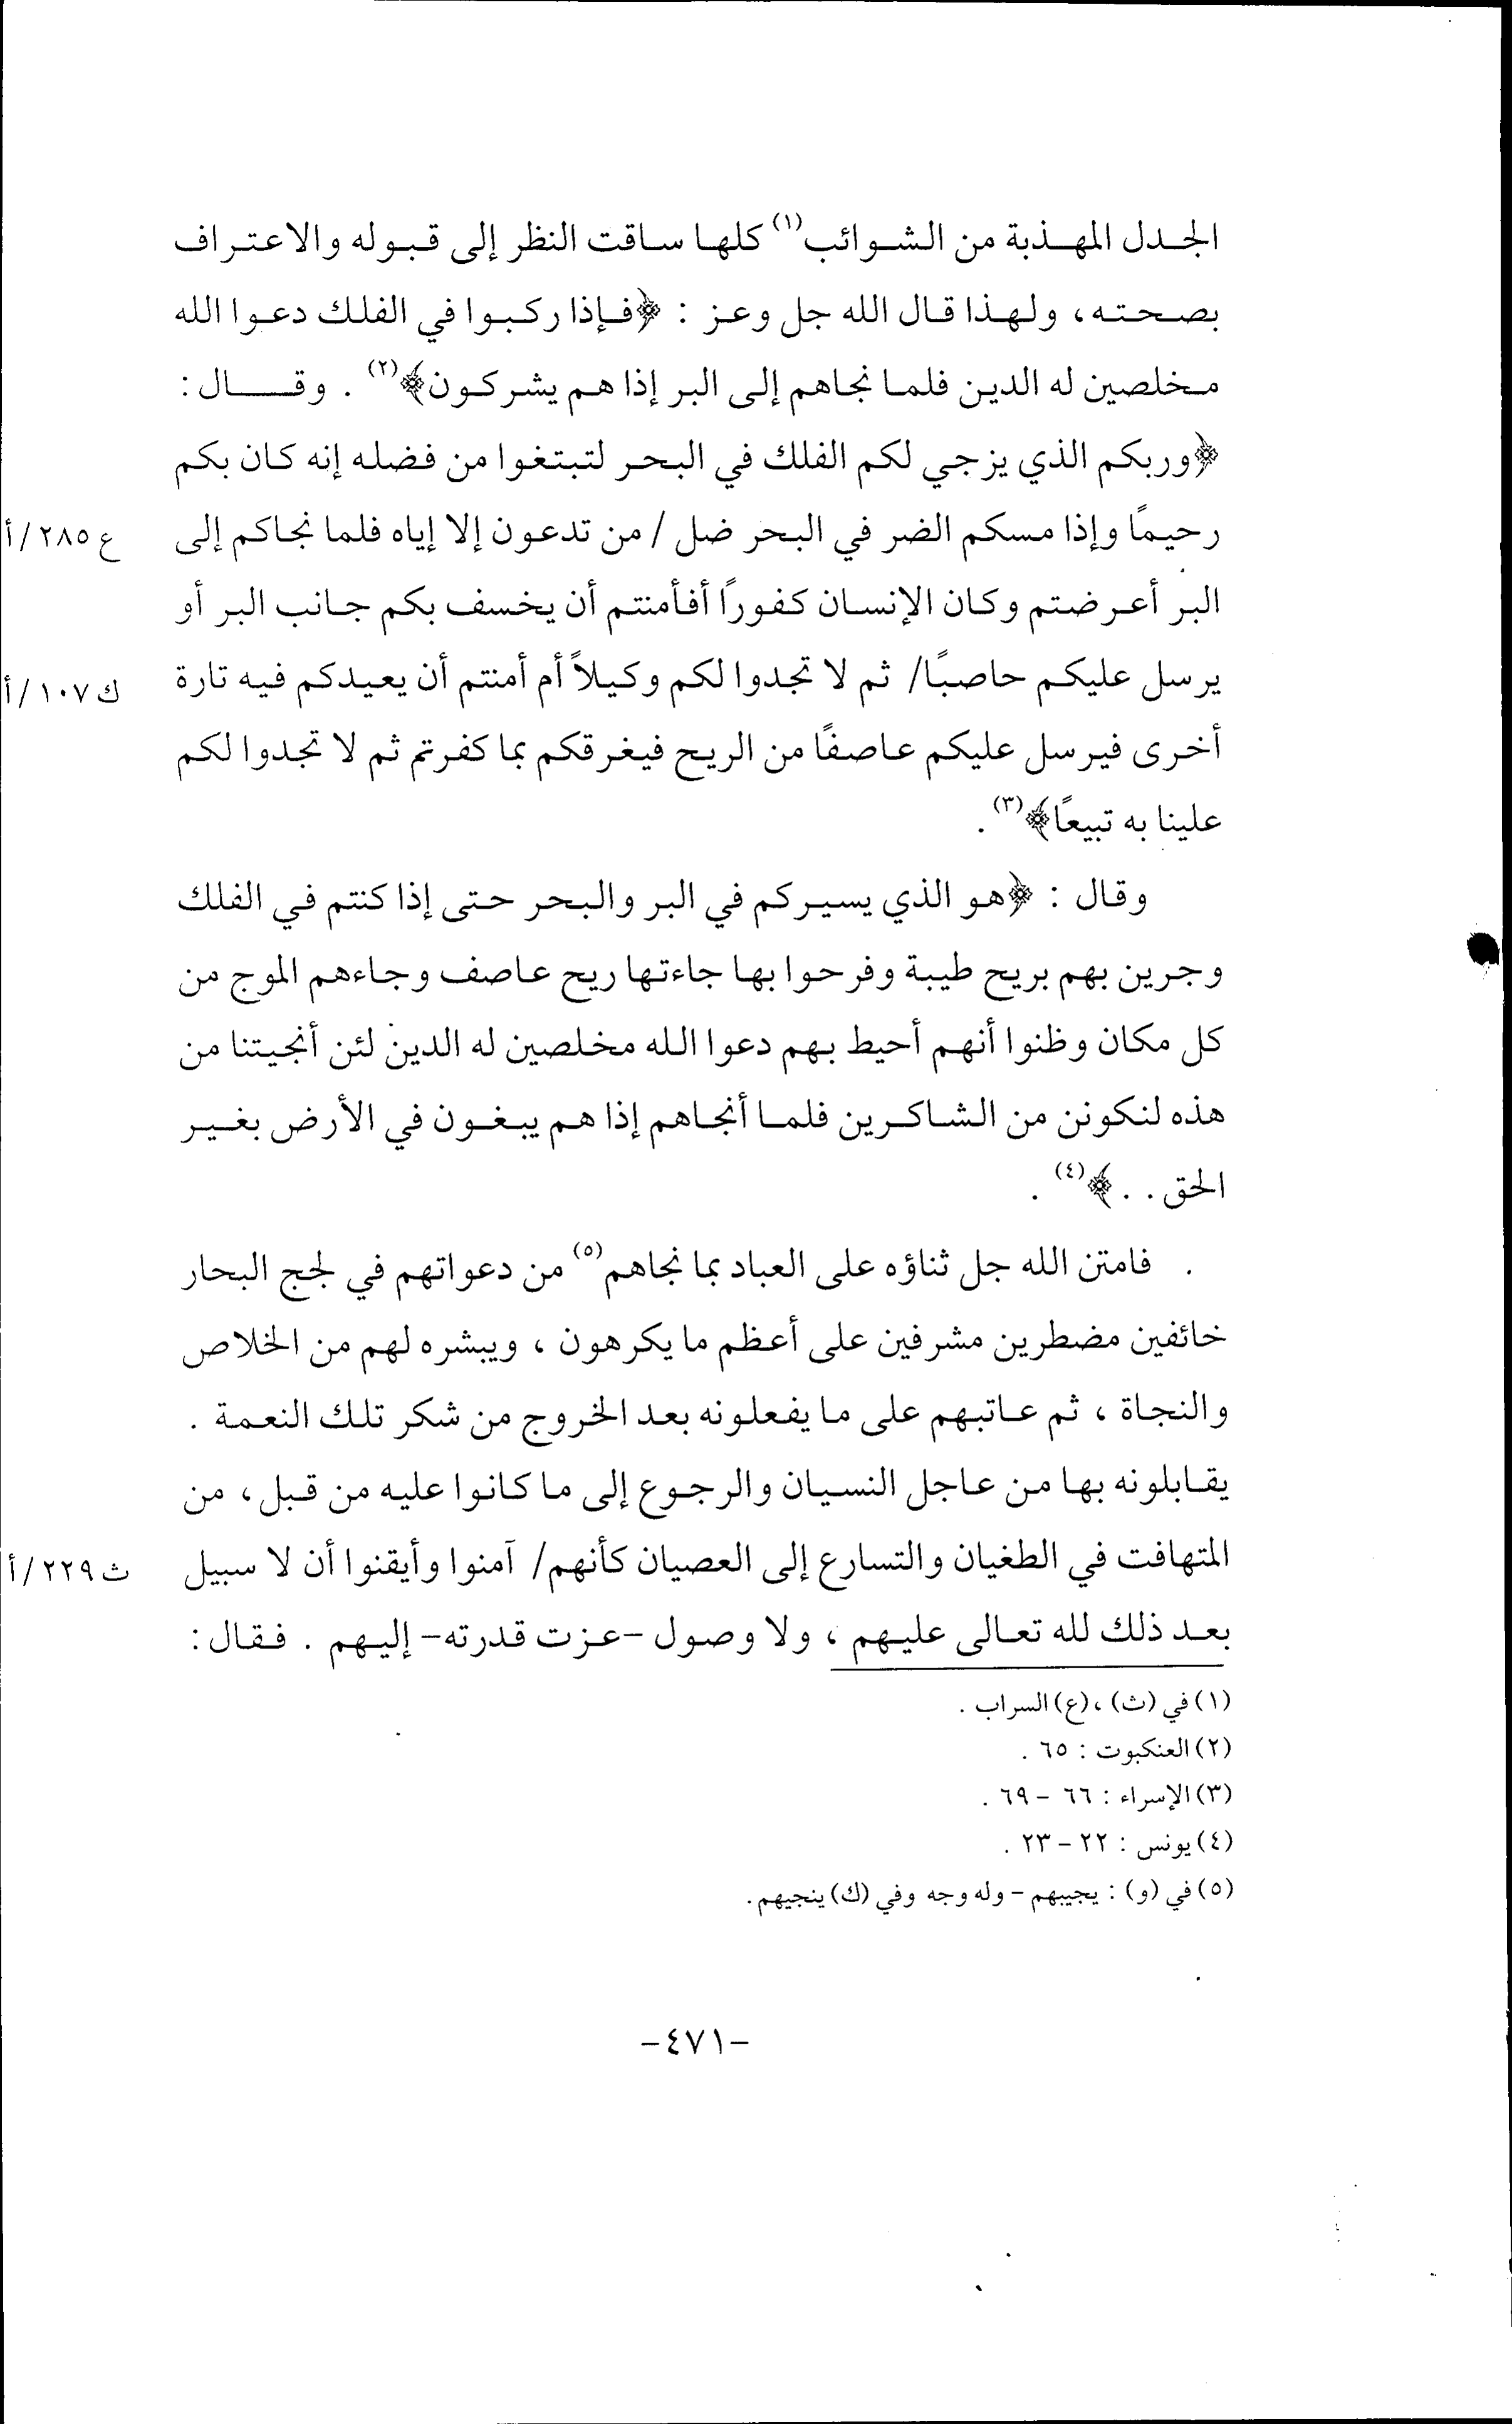 الجدل المهذبة من الشوائب(١) كلها ساقت النظر إلى قبوله والاعتراف
بصحته، ولهذا قال الله جل وعز : ﴿فإذا ركبوا في الفلك دعوا الله
مخلصين له الدين فلما نجاهم إلى البر إذا هم يشركون﴾(٢) . وقال :
﴿وربكم الذي يزجي لكم الفلك في البحر لتبتغوا من فضله إنه كان بكم
رحيمًا وإذا مسكم الضر في البحر ضل / من تدعون إلا إياه فلما نجاكم إلى
ع ٢٨٥/أ
البر أعرضتم وكان الإنسان كفورًا أفأمنتم أن يخسف بكم جانب البر أو
يرسل عليكم حاصبًا/ ثم لا تجدوا لكم وكيلاً أم أمنتم أن يعيدكم فيه تارة
ك ١٠٧/أ
أخرى فيرسل عليكم عاصفًا من الريح فيغرقكم بما كفرتم ثم لا تجدوا لكم
علينا به تبيعًا﴾(٣) .
وقال : ﴿هو الذي يسيركم في البر والبحر حتى إذا كنتم في الفلك
وجرين بهم بريح طيبة وفرحوا بها جاءتها ريح عاصف وجاءهم الموج من
كل مكان وظنوا أنهم أحيط بهم دعوا الله مخلصين له الدين لئن أنجيتنا من
هذه لنكونن من الشاكرين فلما أنجاهم إذا هم يبغون في الأرض بغير
الحق . . ﴾(٤) .
. فامتن الله جل ثناؤه على العباد بما نجاهم(٥) من دعواتهم في لجج البحار
خائفين مضطرين مشرفين على أعظم ما يكرهون ، ويبشره لهم من الخلاص
والنجاة ، ثم عاتبهم على ما يفعلونه بعد الخروج من شكر تلك النعمة .
يقابلونه بها من عاجل النسيان والرجوع إلى ما كانوا عليه من قبل، من
المتهافت في الطغيان والتسارع إلى العصيان كأنهم/ آمنوا وأيقنوا أن لا سبيل
ث ٢٢٩/أ
بعد ذلك لله تعالى عليهم ، ولا وصول -عزت قدرته- إليهم . فقال :
(١) في (ث) ، (ع) السراب .
(٢) العنكبوت : ٦٥ .
(٣) الإسراء : ٦٦ - ٦٩ .
(٤) يونس : ٢٢ - ٢٣ .
(٥) في (و) : يجيبهم - وله وجه وفي (ك) ينجيهم.
-٤٧١-